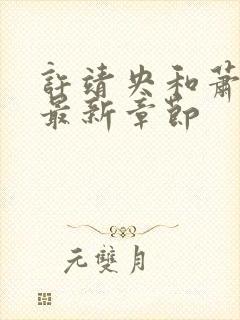 許靖央和蕭
最新章節
元雙月